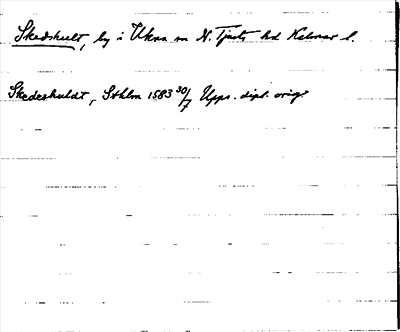 Skedshult, by i Ukna sn N. Tjusts hd Kalmar l.
Skedeshuldt, Sthlm 1583 30/7 Upps. dipl. orig.